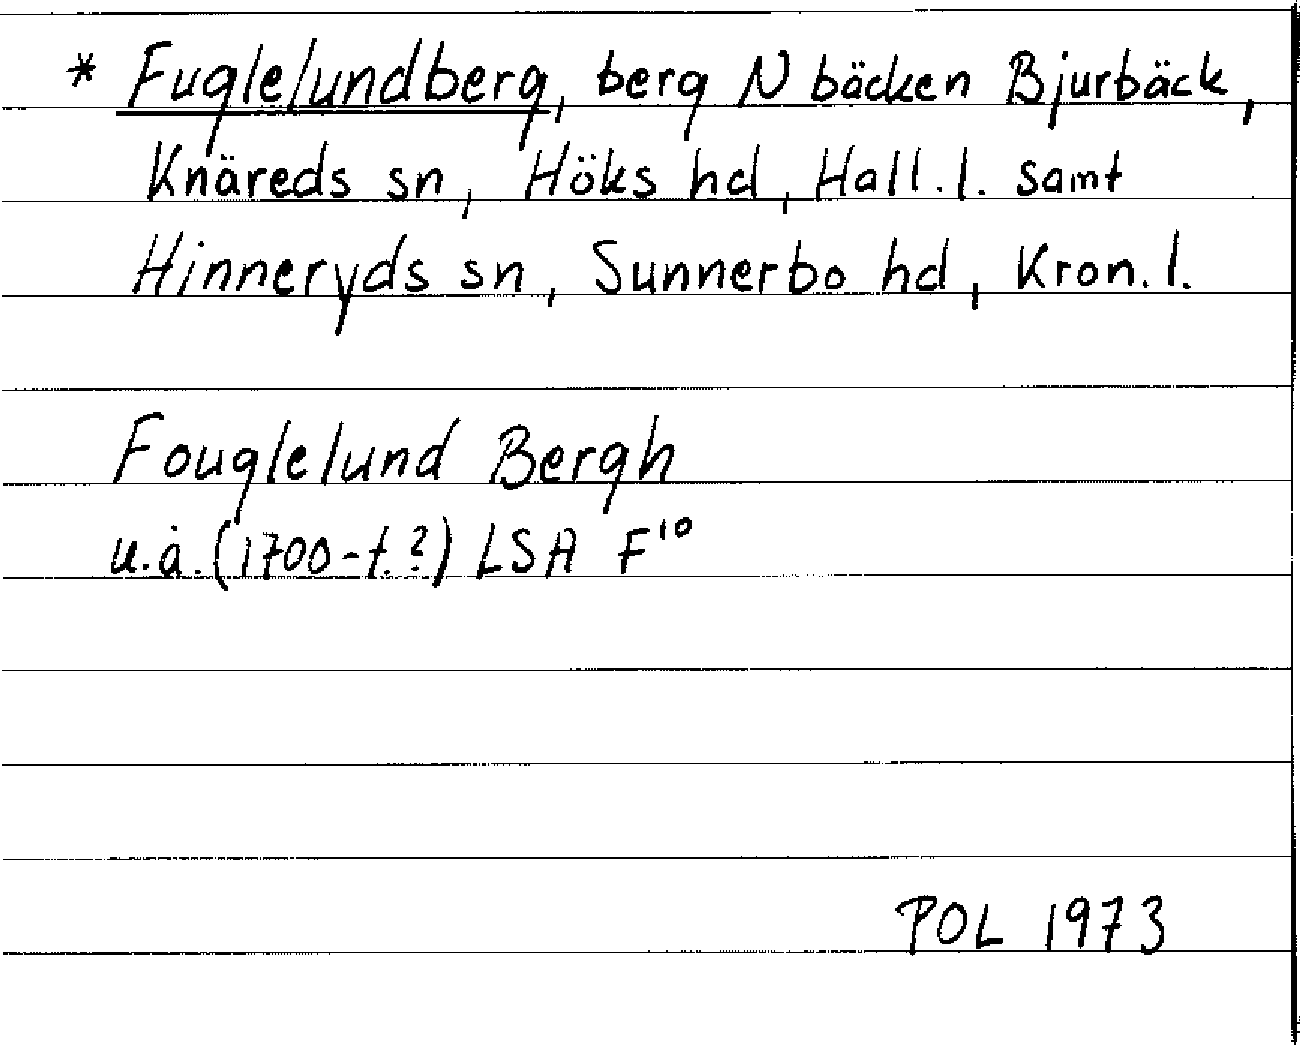 * Fuglelundberg, berg N bäcken Bjurbäck,
Knäreds sn, Höks hd, Hall.l. samt
Hinneryds sn, Sunnerbo hd, Kron.l.
Fouglelund Bergh
u.å.(1700-t.?) LSA F¹⁰
POL 1973